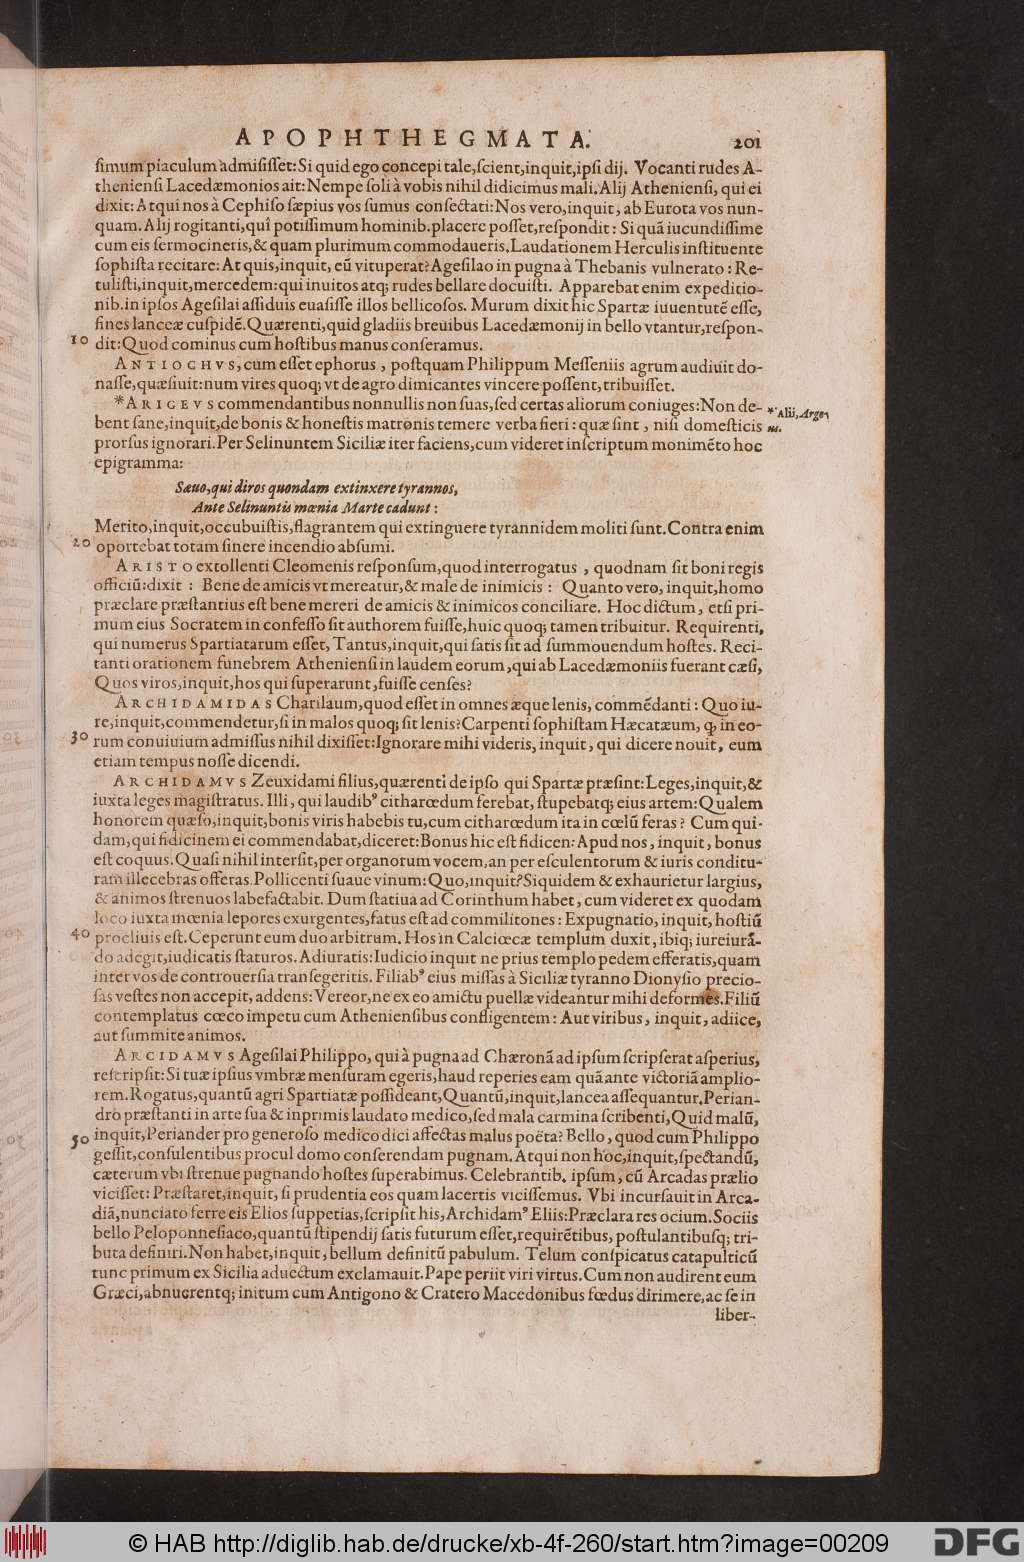 APOPHTHEGMATA. 201
ſimum piaculum admiſiſſet: Si quid ego concepi tale, ſcient, inquit, ipſi dij. Vocanti rudes A-
thenienſi Lacedæmonios ait: Nempe ſoli à vobis nihil didicimus mali. Alij Athenienſi, qui ei
dixit: Atqui nos à Cephiſo ſæpius vos ſumus conſectati: Nos vero, inquit, ab Eurota vos nun-
quam. Alij rogitanti, quî potiſſimum hominib. placere poſſet, reſpondit: Si quã iucundiſſime
cum eis ſermocineris, & quam plurimum commodaueris. Laudationem Herculis inſtituente
ſophiſta recitare: At quis, inquit, eũ vituperat? Ageſilao in pugna à Thebanis vulnerato: Re-
tuliſti, inquit, mercedem: qui inuitos atq; rudes bellare docuiſti. Apparebat enim expeditio-
nib. in ipſos Ageſilai aſſiduis euaſiſſe illos bellicoſos. Murum dixit hic Spartæ iuuentutẽ eſſe,
fines lanceæ cuſpidẽ. Quærenti, quid gladiis breuibus Lacedæmonij in bello vtantur, reſpon-
10 dit: Quod cominus cum hoſtibus manus conſeramus.
ANTIOCHVS, cum eſſet ephorus, poſtquam Philippum Meſſeniis agrum audiuit do-
naſſe, quæſiuit: num vires quoq; vt de agro dimicantes vincere poſſent, tribuiſſet.
*ARIGEVS commendantibus nonnullis non ſuas, ſed certas aliorum coniuges: Non de-
*Alii, Arge-
bent ſane, inquit, de bonis & honeſtis matronis temere verba fieri: quæ ſint, niſi domeſticis
us.
prorſus ignorari. Per Selinuntem Siciliæ iter faciens, cum videret inſcriptum monimẽto hoc
epigramma:
Sæuo, qui diros quondam extinxere tyrannos,
Ante Selinuntis mœnia Marte cadunt:
Merito, inquit, occubuiſtis, flagrantem qui extinguere tyrannidem moliti ſunt. Contra enim
20 oportebat totam ſinere incendio abſumi.
ARISTO extollenti Cleomenis reſponſum, quod interrogatus, quodnam ſit boni regis
officiũ: dixit: Bene de amicis vt mereatur, & male de inimicis: Quanto vero, inquit, homo
præclare præſtantius eſt bene mereri de amicis & inimicos conciliare. Hoc dictum, etſi pri-
mum eius Socratem in confeſſo ſit authorem fuiſſe, huic quoq; tamen tribuitur. Requirenti,
qui numerus Spartiatarum eſſet, Tantus, inquit, qui ſatis ſit ad ſummouendum hoſtes. Reci-
tanti orationem funebrem Athenienſi in laudem eorum, qui ab Lacedæmoniis fuerant cæſi,
Quos viros, inquit, hos qui ſuperarunt, fuiſſe cenſes?
ARCHIDAMIDAS Charilaum, quod eſſet in omnes æque lenis, commẽdanti: Quo iu-
re, inquit, commendetur, ſi in malos quoq; ſit lenis? Carpenti ſophiſtam Hæcatæum, ꝙ in eo-
30 rum conuiuium admiſſus nihil dixiſſet: Ignorare mihi videris, inquit, qui dicere nouit, eum
etiam tempus noſſe dicendi.
ARCHIDAMVS Zeuxidami filius, quærenti de ipſo qui Spartæ præſint: Leges, inquit, &
iuxta leges magiſtratus. Illi, qui laudibꝰ citharœdum ferebat, ſtupebatq; eius artem: Qualem
honorem quæſo, inquit, bonis viris habebis tu, cum citharœdum ita in cœlũ feras? Cum qui-
dam, qui fidicinem ei commendabat, diceret: Bonus hic eſt fidicen: Apud nos, inquit, bonus
eſt coquus. Quaſi nihil interſit, per organorum vocem, an per eſculentorum & iuris conditu-
ram illecebras offeras. Pollicenti ſuaue vinum: Quo, inquit? Siquidem & exhaurietur largius,
& animos ſtrenuos labefactabit. Dum ſtatiua ad Corinthum habet, cum videret ex quodam
loco iuxta mœnia lepores exurgentes, fatus eſt ad commilitones: Expugnatio, inquit, hoſtiũ
40 procliuis eſt. Ceperunt eum duo arbitrum. Hos in Calciœcæ templum duxit, ibiq; iureiurã-
do adegit, iudicatis ſtaturos. Adiuratis: Iudicio inquit ne prius templo pedem efferatis, quam
inter vos de controuerſia tranſegeritis. Filiabꝰ eius miſſas à Siciliæ tyranno Dionyſio precio-
ſas veſtes non accepit, addens: Vereor, ne ex eo amictu puellæ videantur mihi deformes. Filiũ
contemplatus cœco impetu cum Athenienſibus confligentem: Aut viribus, inquit, adiice,
aut ſummite animos.
ARCIDAMVS Ageſilai Philippo, qui à pugna ad Chæronã ad ipſum ſcripſerat aſperius,
reſcripſit: Si tuæ ipſius vmbræ menſuram egeris, haud reperies eam quã ante victoriã amplio-
rem. Rogatus, quantũ agri Spartiatæ poſſideant, Quantũ, inquit, lancea aſſequantur. Perian-
dro præſtanti in arte ſua & inprimis laudato medico, ſed mala carmina ſcribenti, Quid malũ,
50 inquit, Periander pro generoſo medico dici affectas malus poëta? Bello, quod cum Philippo
geſſit, conſulentibus procul domo conſerendam pugnam. Atqui non hoc, inquit, ſpectandũ,
cæterum vbi ſtrenue pugnando hoſtes ſuperabimus. Celebrantib. ipſum, cũ Arcadas prælio
viciſſet: Præſtaret, inquit, ſi prudentia eos quam lacertis viciſſemus. Vbi incurſauit in Arca-
diã, nunciato ferre eis Elios ſuppetias, ſcripſit his, Archidamꝰ Eliis: Præclara res ocium. Sociis
bello Peloponneſiaco, quantũ ſtipendij ſatis futurum eſſet, requirẽtibus, poſtulantibuſq; tri-
buta definiri. Non habet, inquit, bellum definitũ pabulum. Telum conſpicatus catapulticũ
tunc primum ex Sicilia aduectum exclamauit. Pape periit viri virtus. Cum non audirent eum
Græci, abnuerentq; initum cum Antigono & Cratero Macedonibus fœdus dirimere, ac ſe in
liber-
© HAB http://diglib.hab.de/drucke/xb-4f-260/start.htm?image=00209 DFG